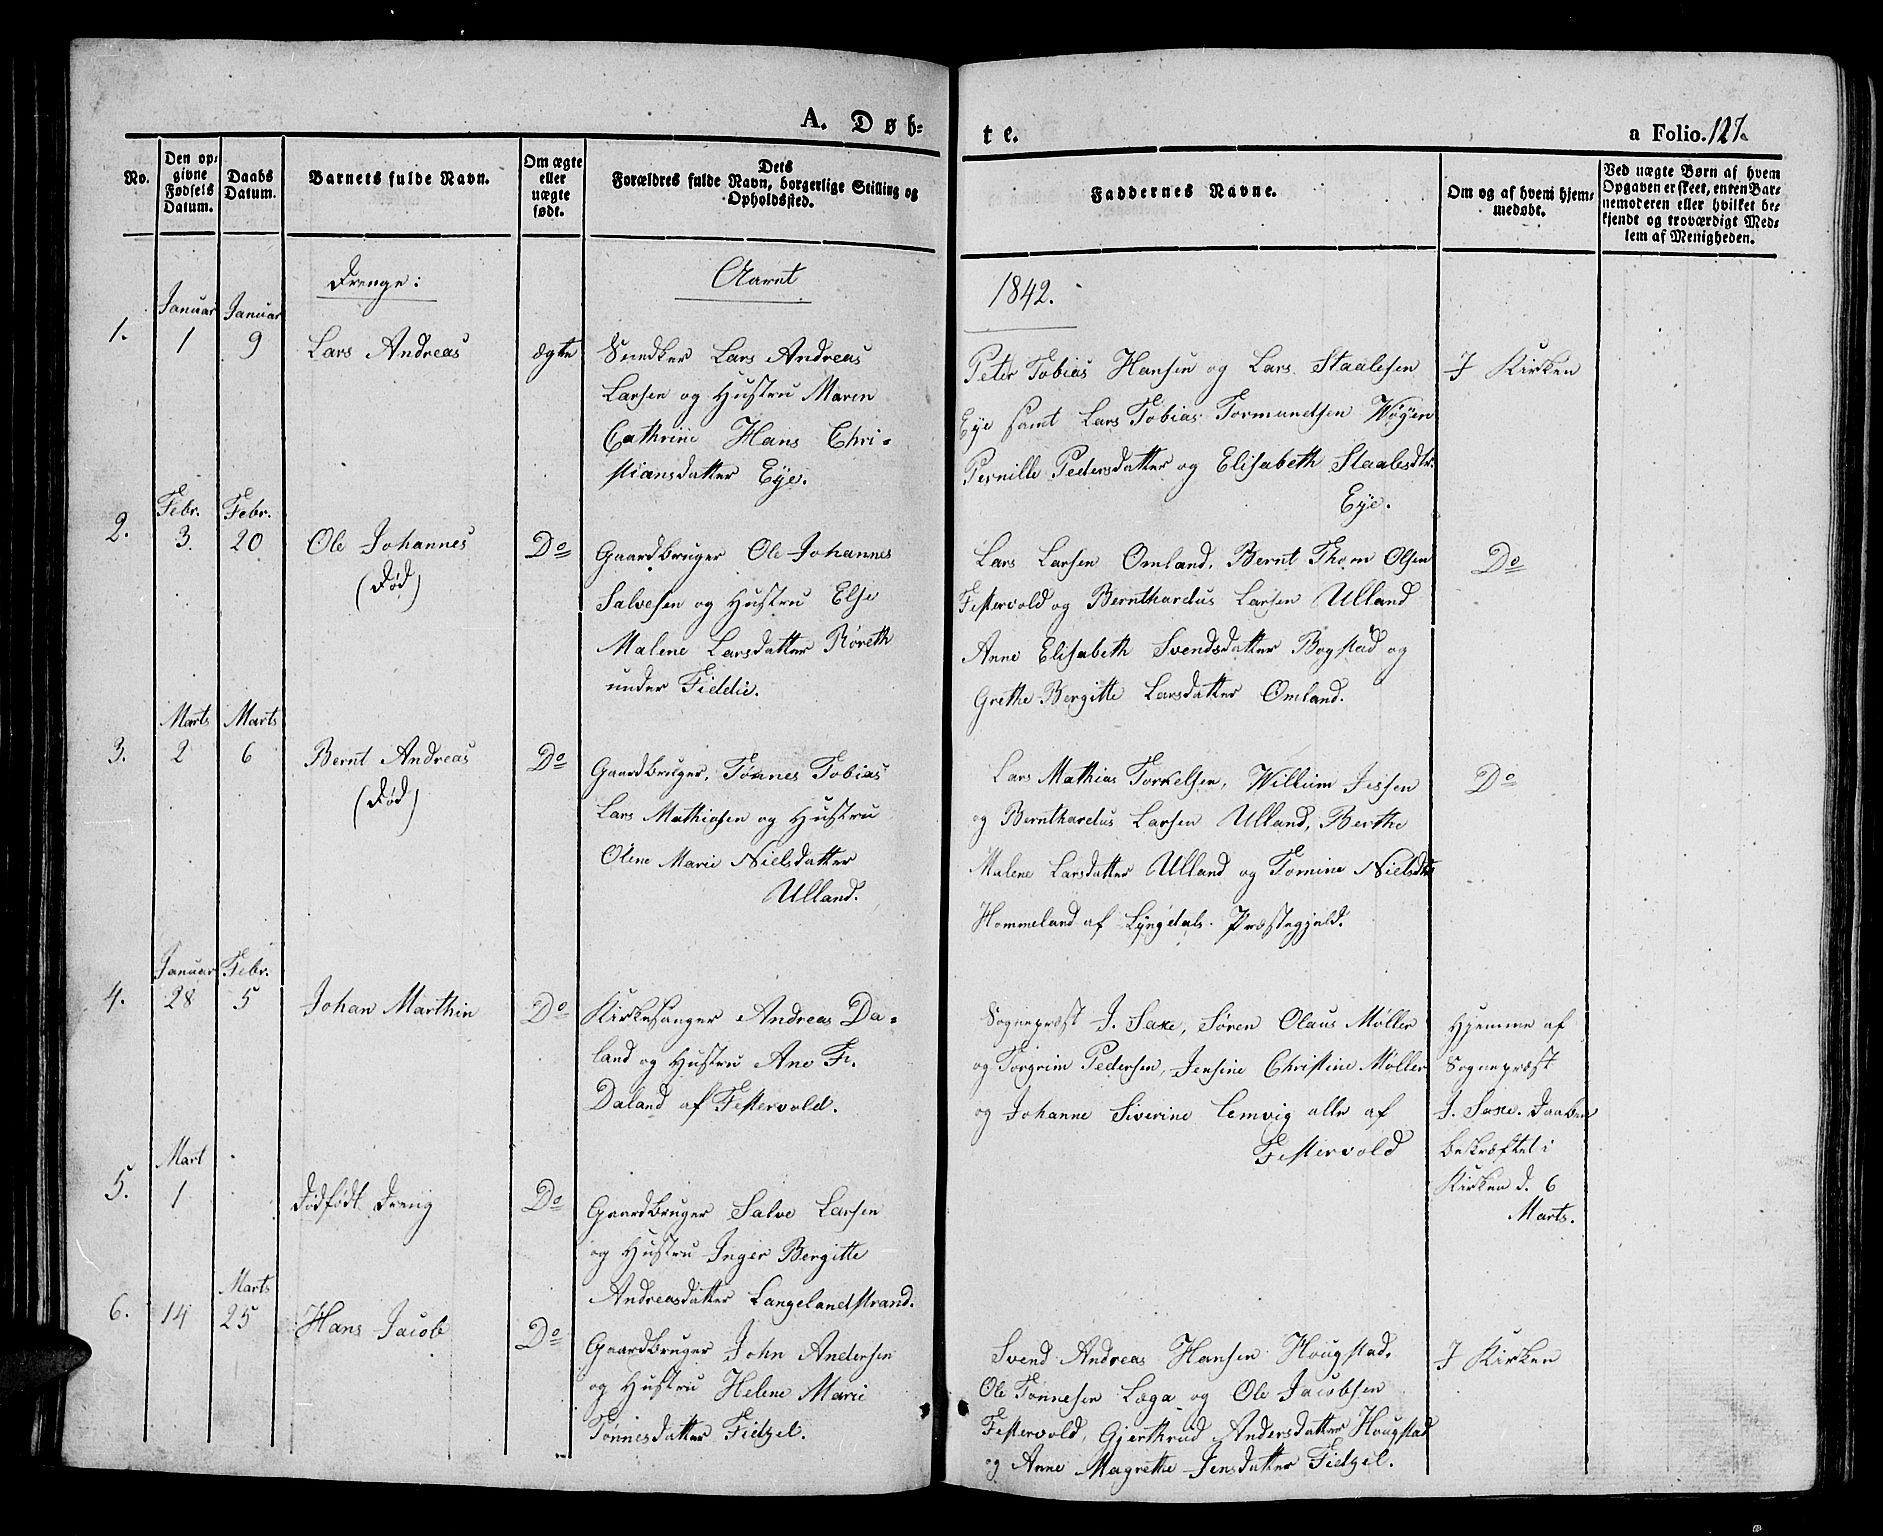 A. Døb-
te.
a Folio. 127a
No.
Den op-
givne
Fødsels
Datum.
Daabs
Datum.
Barnets fulde Navn.
Om ægte
eller
uægte
født.
Dets
Forældres fulde Navn, borgerlige Stilling og
Opholdssted.
Faddernes Navne.
Om og af hvem hjem-
medøbt.
Ved uægte Børn af hvem
Opgaven er skeet, enten Bar-
nemoderen eller hvilket be-
kjendt og troværdigt Med-
lem af Menigheden.
Drenge:
Aaret
1842.
Januar
Januar
1.
1
9
Lars Andreas
ægte
Snedker Lars Andreas
Larsen og Hustru Maren
Cathrine Hans Chri-
stiansdatter Eye.
Peter Tobias Hansen og Lars Staalesen
Eye samt Lars Tobias Tormundsen Wøyen
Pernille Pedersdatter og Elisabeth Staalesdtr.
Eye.
I Kirken
Febr.
Febr.
2.
3.
20
Ole Johannes
(Død)
Do
Gaardbruger Ole Johannes
Salvesen og Hustru Else
Malene Larsdatter Røreth
under Fiddie.
Lars Larsen Omland, Bernt Thom Olsen
Festervold og Bernthardus Larsen Ulland
Anne Elisabeth Svendsdatter Bogstad og
Grethe Bergitte Larsdatter Omland.
Do
Marts
Marts
3.
2
6
Bernt Andreas
(Død)
Do
Gaardbruger, Tønnes Tobias
Lars Mathiasen og Hustru
Olene Marie Nielsdatter
Ulland.
Lars Mathias Torkelsen, Willium Jessen
og Bernthardus Larsen Ulland, Berthe
Malene Larsdatter Ulland og Tomine Nielsdtr
Hommeland af Lyngdals Præstegjeld.
Do
Januar
Febr.
4.
28
5
Johan Marthin
Do
Kirkesanger Andreas Da-
land og Hustru Ane F.
Daland af Festervold.
Sognepræst J. Saxe, Søren Claus Møller
og Torgrim Pedersen, Jensine Christine Møller
og Johanne Siverine Lemvig alle af
Festervold
Hjemme af
Sognepræst
J. Saxe. Daaben
bekræftet i
Kirken d. 6
Marts.
Mart
5.
1
Dødfødt Dreng
Do
Gaardbruger Salve Larsen
og Hustru Inger Bergitte
Andreasdatter Langelandstrand.
Marts
6.
14
25
Hans Jacob
Do
Gaardbruger John Andersen
og Hustru Helene Marie
Tønnesdatter Fidzel.
Svend Andreas Hansen Hougstad.
Ole Tønnesen Læga og Ole Jacobsen
Festervold, Gjerthrud Andersdatter Hougstad
og Anne Magrethe Jensdatter Fidzel.
I Kirken